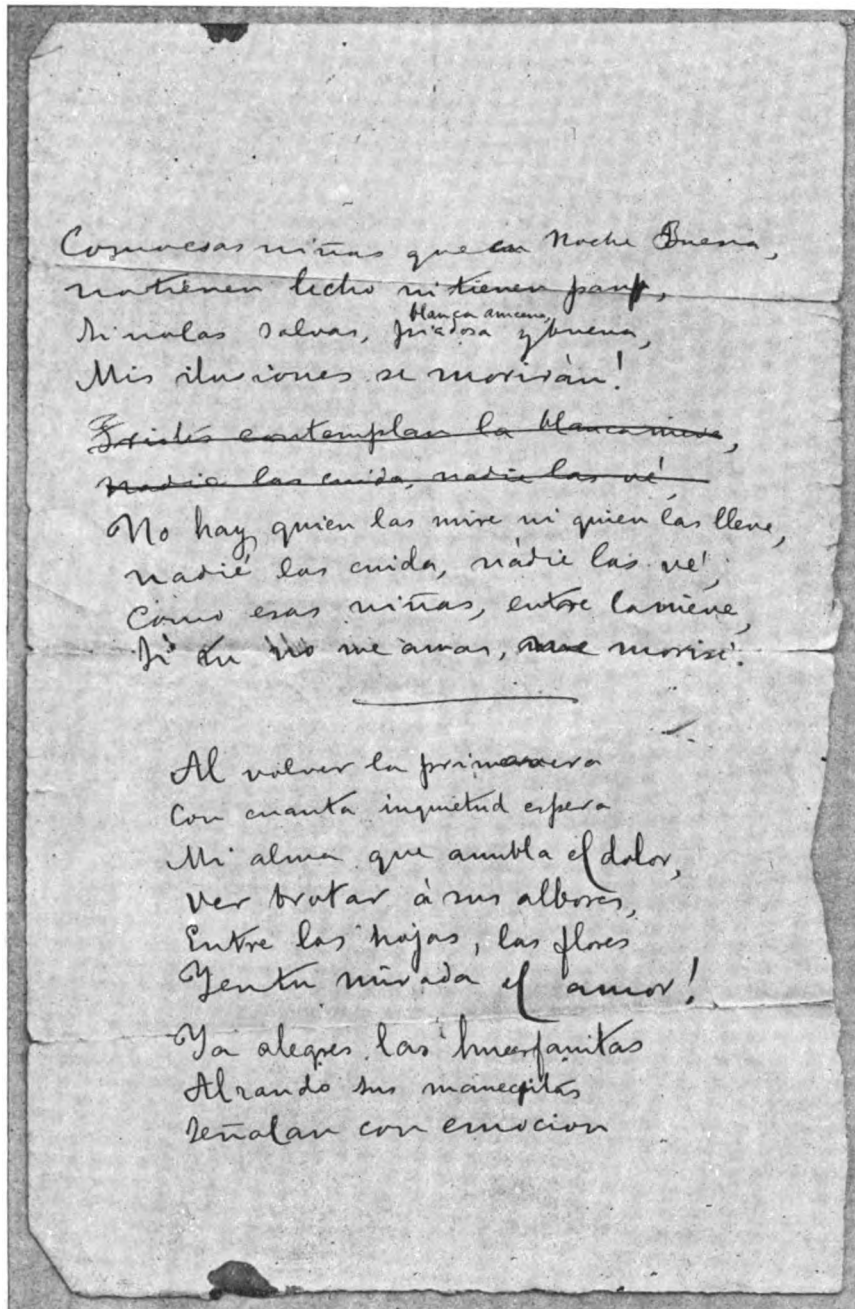 Como esas niñas que en Noche Buena,
no tienen lecho ni tienen pan,
blanca
Si no las salvas, piadosa y buena,
Mis ilusiones se morirán!
Tristes contemplan la blanca nieve,
nadie las cuida, nadie las vé
No hay quien las mire ni quien las lleve,
nadie las cuida, nadie las vé,
Como esas niñas, entre la nieve,
Si tu no me amas, me moriré.
Al volver la primavera
Con cuanta inquietud espera
Mi alma que anubla el dolor,
Ver brotar á sus albores,
Entre las hojas, las flores
Y en tu mirada el amor!
Ya alegres las huerfanitas
Alzando sus manecitas
Señalan con emocion